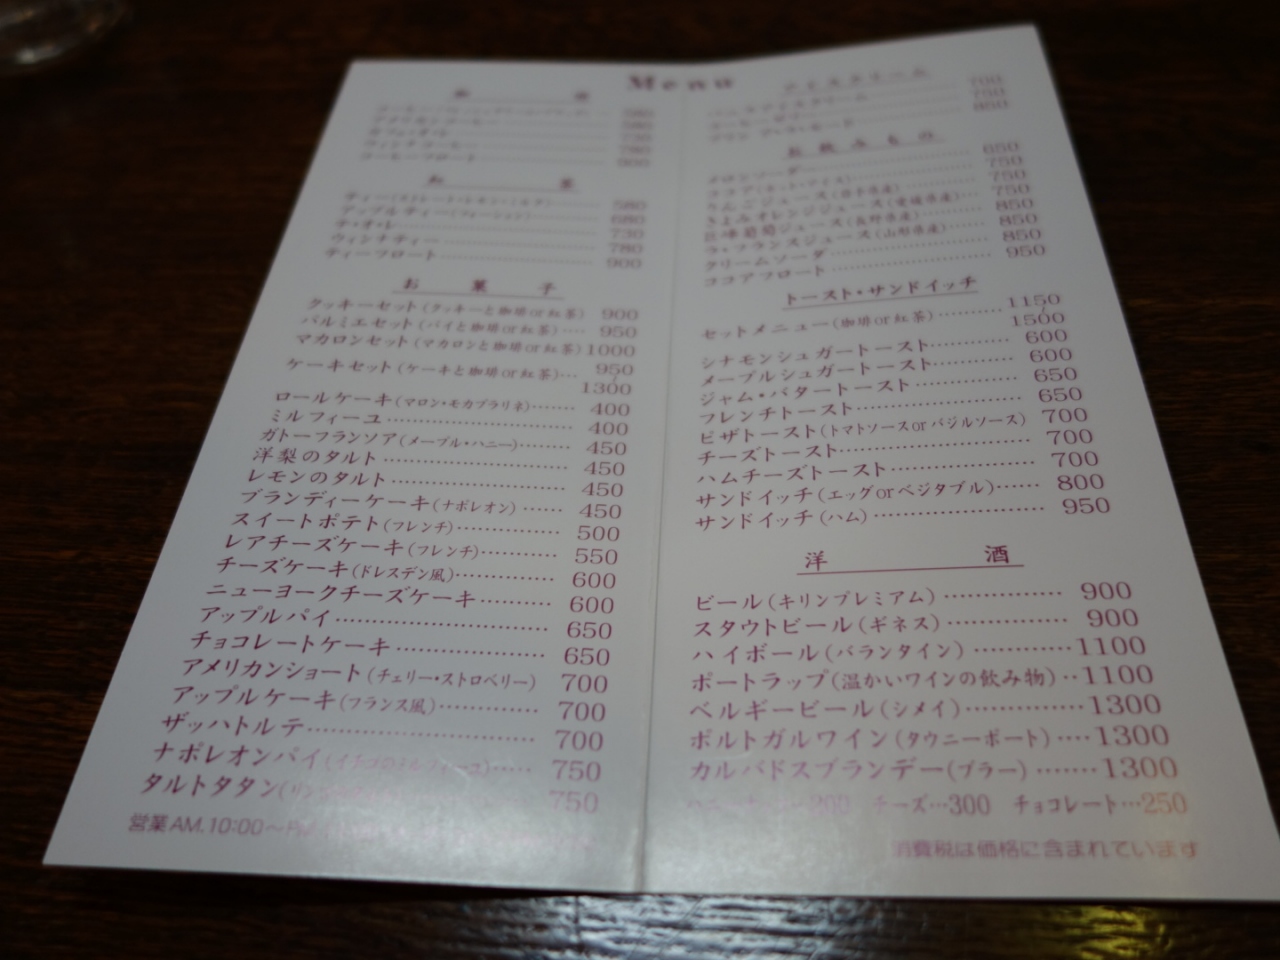 Menu
紅 茶
アップルティー 680
テ・オ・レ 730
ウィンナティー 780
ティーフロート 900
お 菓 子
クッキーセット(クッキーと珈琲or紅茶) 900
パルミエセット(パイと珈琲or紅茶)···· 950
マカロンセット(マカロンと珈琲or紅茶)1000
ケーキセット(ケーキと珈琲or紅茶)··· 950
1300
ロールケーキ(マロン・モカプラリネ)······· 400
ミルフィーユ······························ 400
ガトーフランソア(メープル・ハニー)········ 450
洋梨のタルト····························· 450
レモンのタルト··························· 450
ブランディーケーキ(ナポレオン)······ 450
スイートポテト(フレンチ)················ 500
レアチーズケーキ(フレンチ)··········· 550
チーズケーキ(ドレスデン風)·············· 600
ニューヨークチーズケーキ·········· 600
アップルパイ······························ 650
チョコレートケーキ····················· 650
アメリカンショート(チェリー・ストロベリー) 700
アップルケーキ(フランス風)············· 700
ザッハトルテ······························ 700
ナポレオンパイ(イチゴのミルフィーユ)····· 750
タルトタタン 750
営業AM.10:00～
アイスクリーム
お飲みもの
メロンソーダ 650
ココア(ホット・アイス) 750
りんごジュース(岩手県産) 750
きよみオレンジジュース(愛媛県産) 750
巨峰葡萄ジュース(長野県産) 850
ラ・フランスジュース(山形県産) 850
クリームソーダ 850
ココアフロート 950
トースト・サンドイッチ
セットメニュー(珈琲or紅茶)·········· 1150
1500
シナモンシュガートースト··········· 600
メープルシュガートースト··········· 600
ジャム・バタートースト·············· 650
フレンチトースト······················· 650
ピザトースト(トマトソースorバジルソース) 700
チーズトースト·························· 700
ハムチーズトースト···················· 700
サンドイッチ(エッグorベジタブル)······ 800
サンドイッチ(ハム)························ 950
洋 酒
ビール(キリンプレミアム)··············· 900
スタウトビール(ギネス)··············· 900
ハイボール(バランタイン)············1100
ポートラップ(温かいワインの飲み物)··1100
ベルギービール(シメイ)··············1300
ポルトガルワイン(タウニーポート)····1300
カルバドスブランデー(ブラー)·······1300
チーズ···300 チョコレート···250
消費税は価格に含まれています